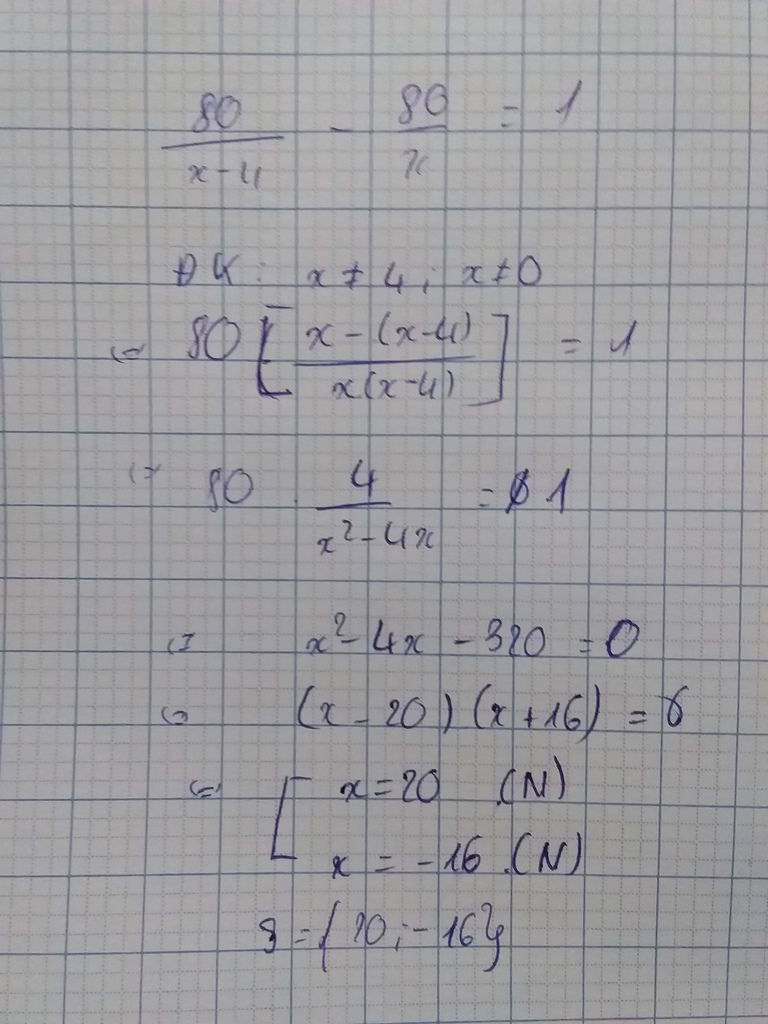 80/(x-4) - 80/x = 1
ĐK: x ≠ 4; x ≠ 0
⇔ 80 [(x-(x-4))/(x(x-4))] = 1
⇔ 80 . 4/(x²-4x) = 1
⇔ x²-4x-320 = 0
⇔ (x-20)(x+16) = 0
⇔ [ x = 20 (N)
x = -16 (N)
S = {20; -16}